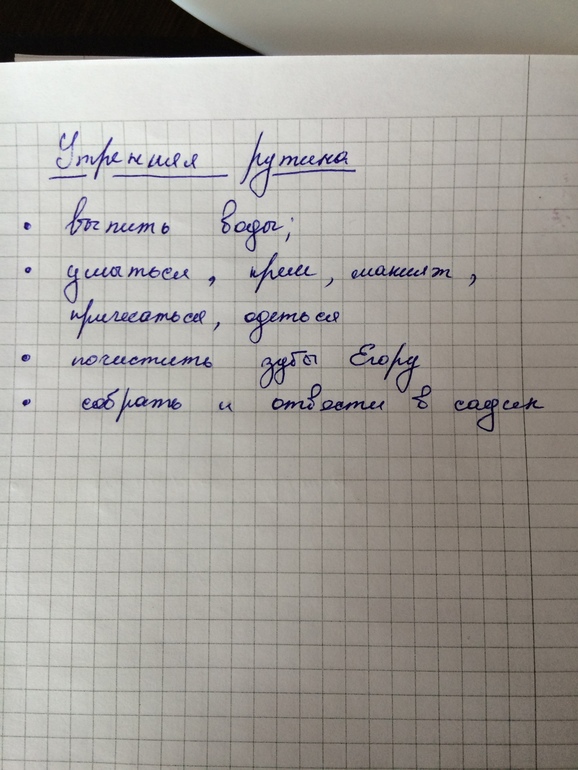 Утренняя рутина
• выпить воды;
• умыться, крем, макияж,
причесаться, одеться
• почистить зубы Егору
• собрать и отвести в садик